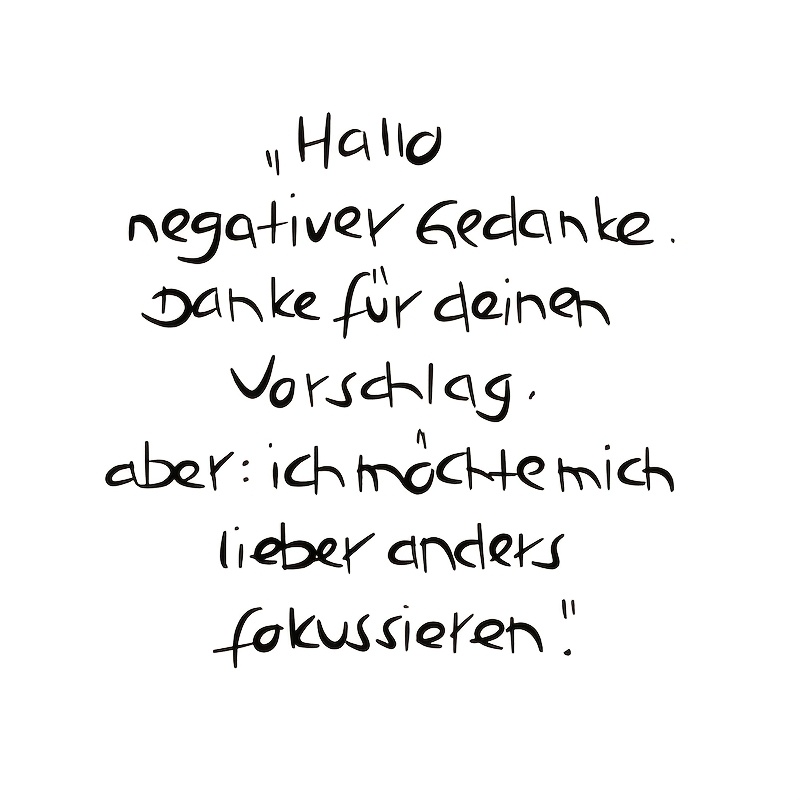 „Hallo
negativer Gedanke.
Danke für deinen
Vorschlag.
aber: ich möchte mich
lieber anders
fokussieren."